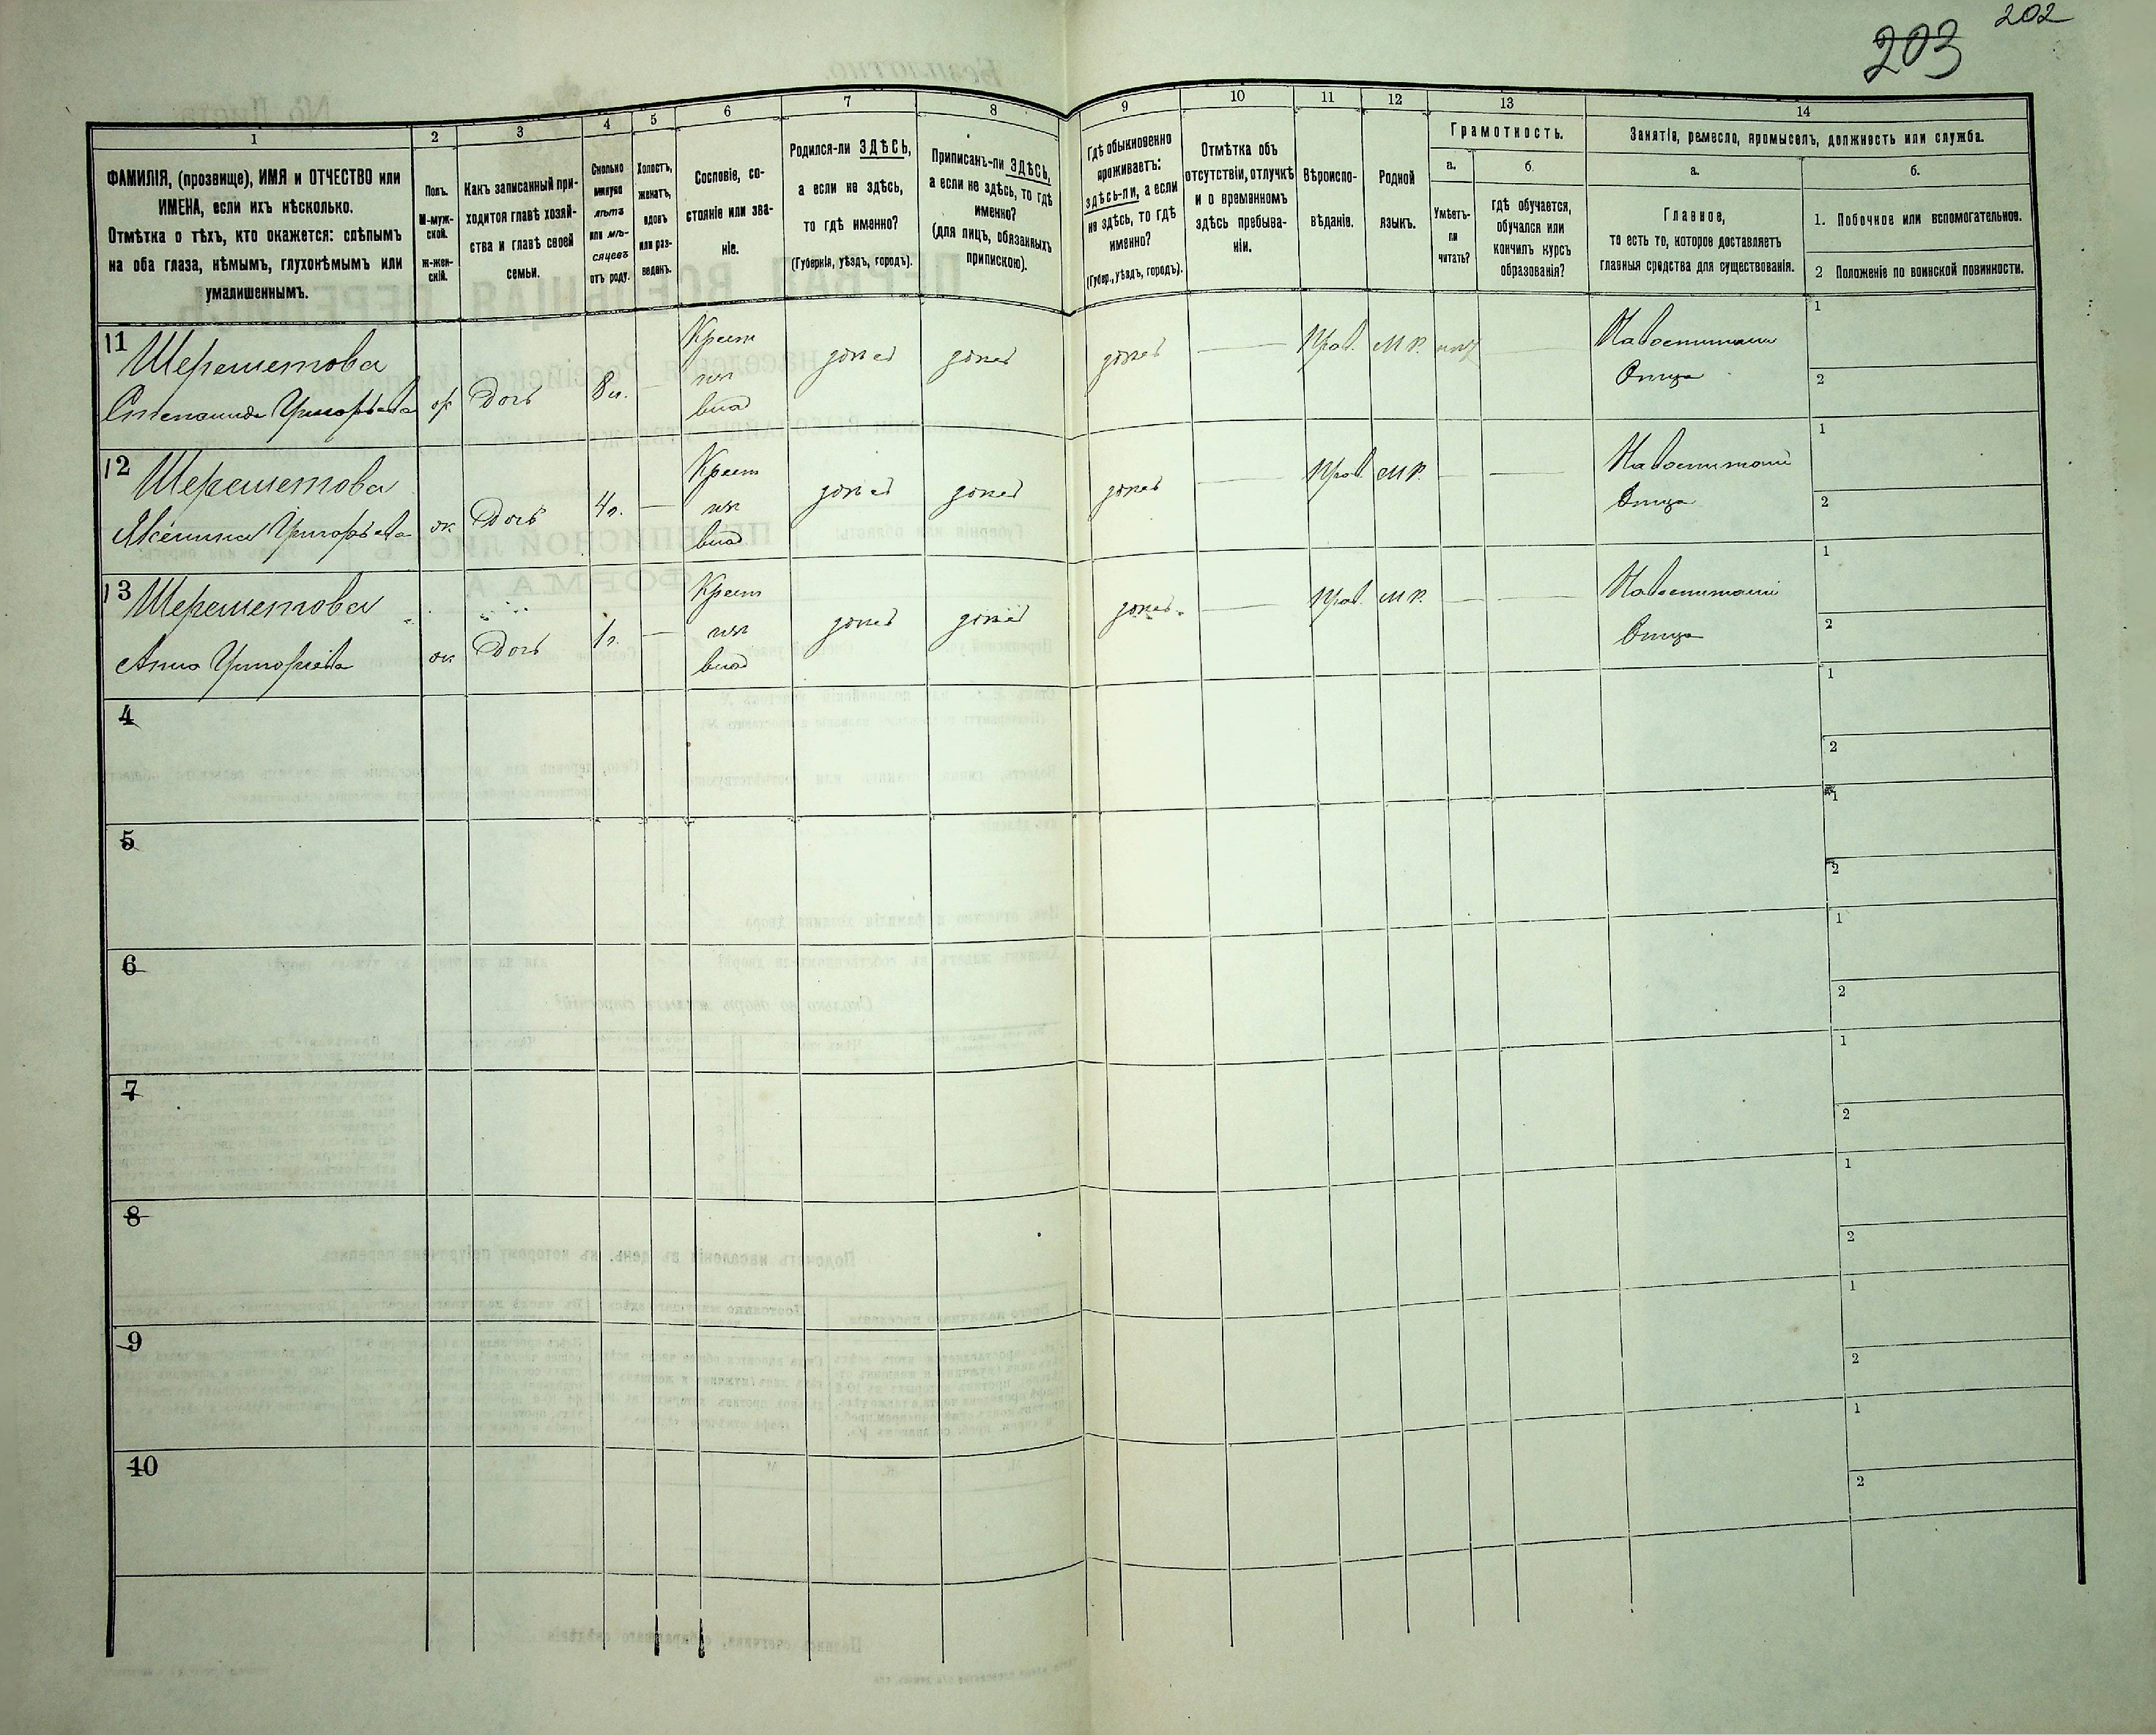 202
203
1
2
3
4
5
6
7
8
9
10
11
12
13
14
ФАМИЛІЯ, (прозвище), ИМЯ и ОТЧЕСТВО или
ИМЕНА, если ихъ нѣсколько.
Отмѣтка о тѣхъ, кто окажется: слѣпымъ
на оба глаза, нѣмымъ, глухонѣмымъ или
умалишеннымъ.
Полъ.
М-муж-
ской.
ж-жен-
скій.
Какъ записанный при-
ходится главѣ хозяй-
ства и главѣ своей
семьи.
Сколько
минуло
лѣтъ
или мѣ-
сяцевъ
отъ роду.
Холостъ,
женатъ,
вдовъ
или раз-
веденъ.
Сословіе, со-
стояніе или зва-
ніе.
Родился-ли ЗДѢСЬ,
а если не здѣсь,
то гдѣ именно?
(Губернія, уѣздъ, городъ).
Приписанъ-ли ЗДѢСЬ,
а если не здѣсь, то гдѣ
именно?
(для лицъ, обязанныхъ
припискою).
Гдѣ обыкновенно
проживаетъ:
здѣсь-ли, а если
не здѣсь, то гдѣ
именно?
(Губер., уѣздъ, городъ).
Отмѣтка объ
отсутствіи, отлучкѣ
и о временномъ
здѣсь пребыва-
ніи.
Вѣроиспо-
вѣданіе.
Родной
языкъ.
Грамотность.
а.
б.
Умѣетъ-
ли
читать?
гдѣ обучается,
обучался или
кончилъ курсъ
образованія?
Занятія, ремесло, промыселъ, должность или служба.
а.
б.
Главное,
то есть то, которое доставляетъ
главныя средства для существованія.
1. Побочное или вспомогательное.
2 Положеніе по воинской повинности.
11
Шереметова
Степанида Григорьева
ж
Дочь
8 л.
Крест
изъ
влад
здѣсь
здѣсь
здѣсь
Прав.
М Р.
нѣт
На воспитании
Отца
1
2
12
Шереметова
Григорьева
ж
Дочь
4 г.
Крест
изъ
влад
здѣсь
здѣсь
здѣсь
Прав
М Р.
На воспитаніи
Отца
1
2
13
Шереметова
Анна Григорьева
ж
Дочь
1 г.
Крест
изъ
влад
здѣсь
здѣсь
здѣсь
Прав.
М Р.
На воспитаніи
Отца
1
2
4
1
2
5
1
2
6
1
2
7
1
2
8
1
2
9
1
2
10
1
2